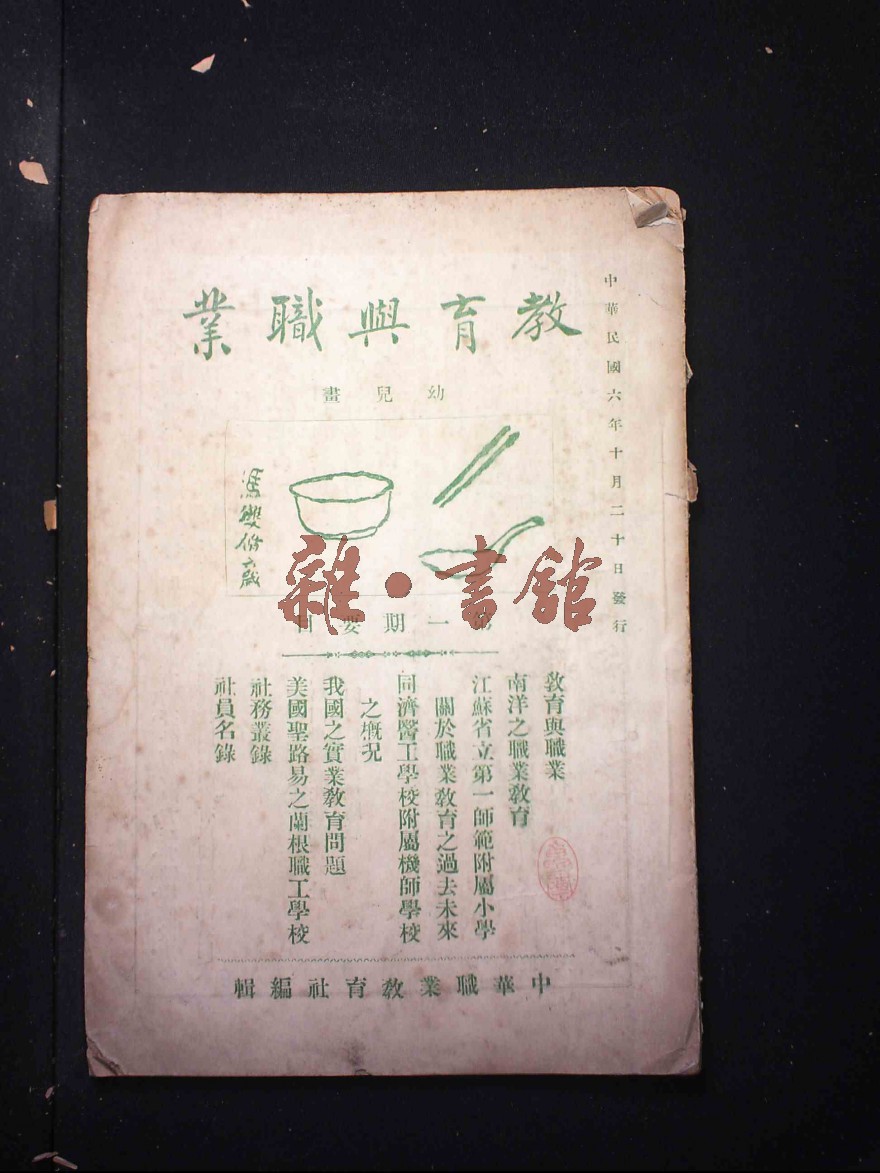 中華民國六年十月二十日發行
教育與職業
幼兒畫
雜·書舘
第一期要目
教育與職業
南洋之職業教育
江蘇省立第一師範附屬小學
關於職業教育之過去未來
同濟醫工學校附屬機師學校
之概況
我國之實業教育問題
美國聖路易之蘭根職工學校
社務叢錄
社員名錄
中華職業教育社編輯